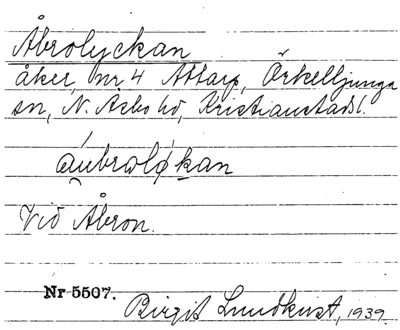 Åbrolyckan
åker, nr 4 Attarp, Örkelljunga
sn, N. Åsbo hd, Kristianstads l.
áubrolø̀kan
Vid Åbron.
Nr 5507.
Birgit Lundkvist, 1939.